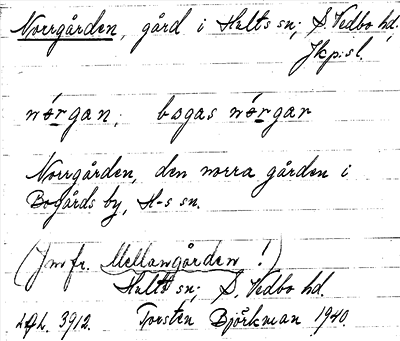 Norrgården, gård i Hults sn; S. Vedbo hd,
Jkp:s l.
nórgan; bogas nórgar
Norrgården, den norra gården i
Bogårds by, H-s sn.
(Jmfr. Mellangården!)
Hults sn; S. Vedbo hd.
3912. Torsten Björkman 1940.